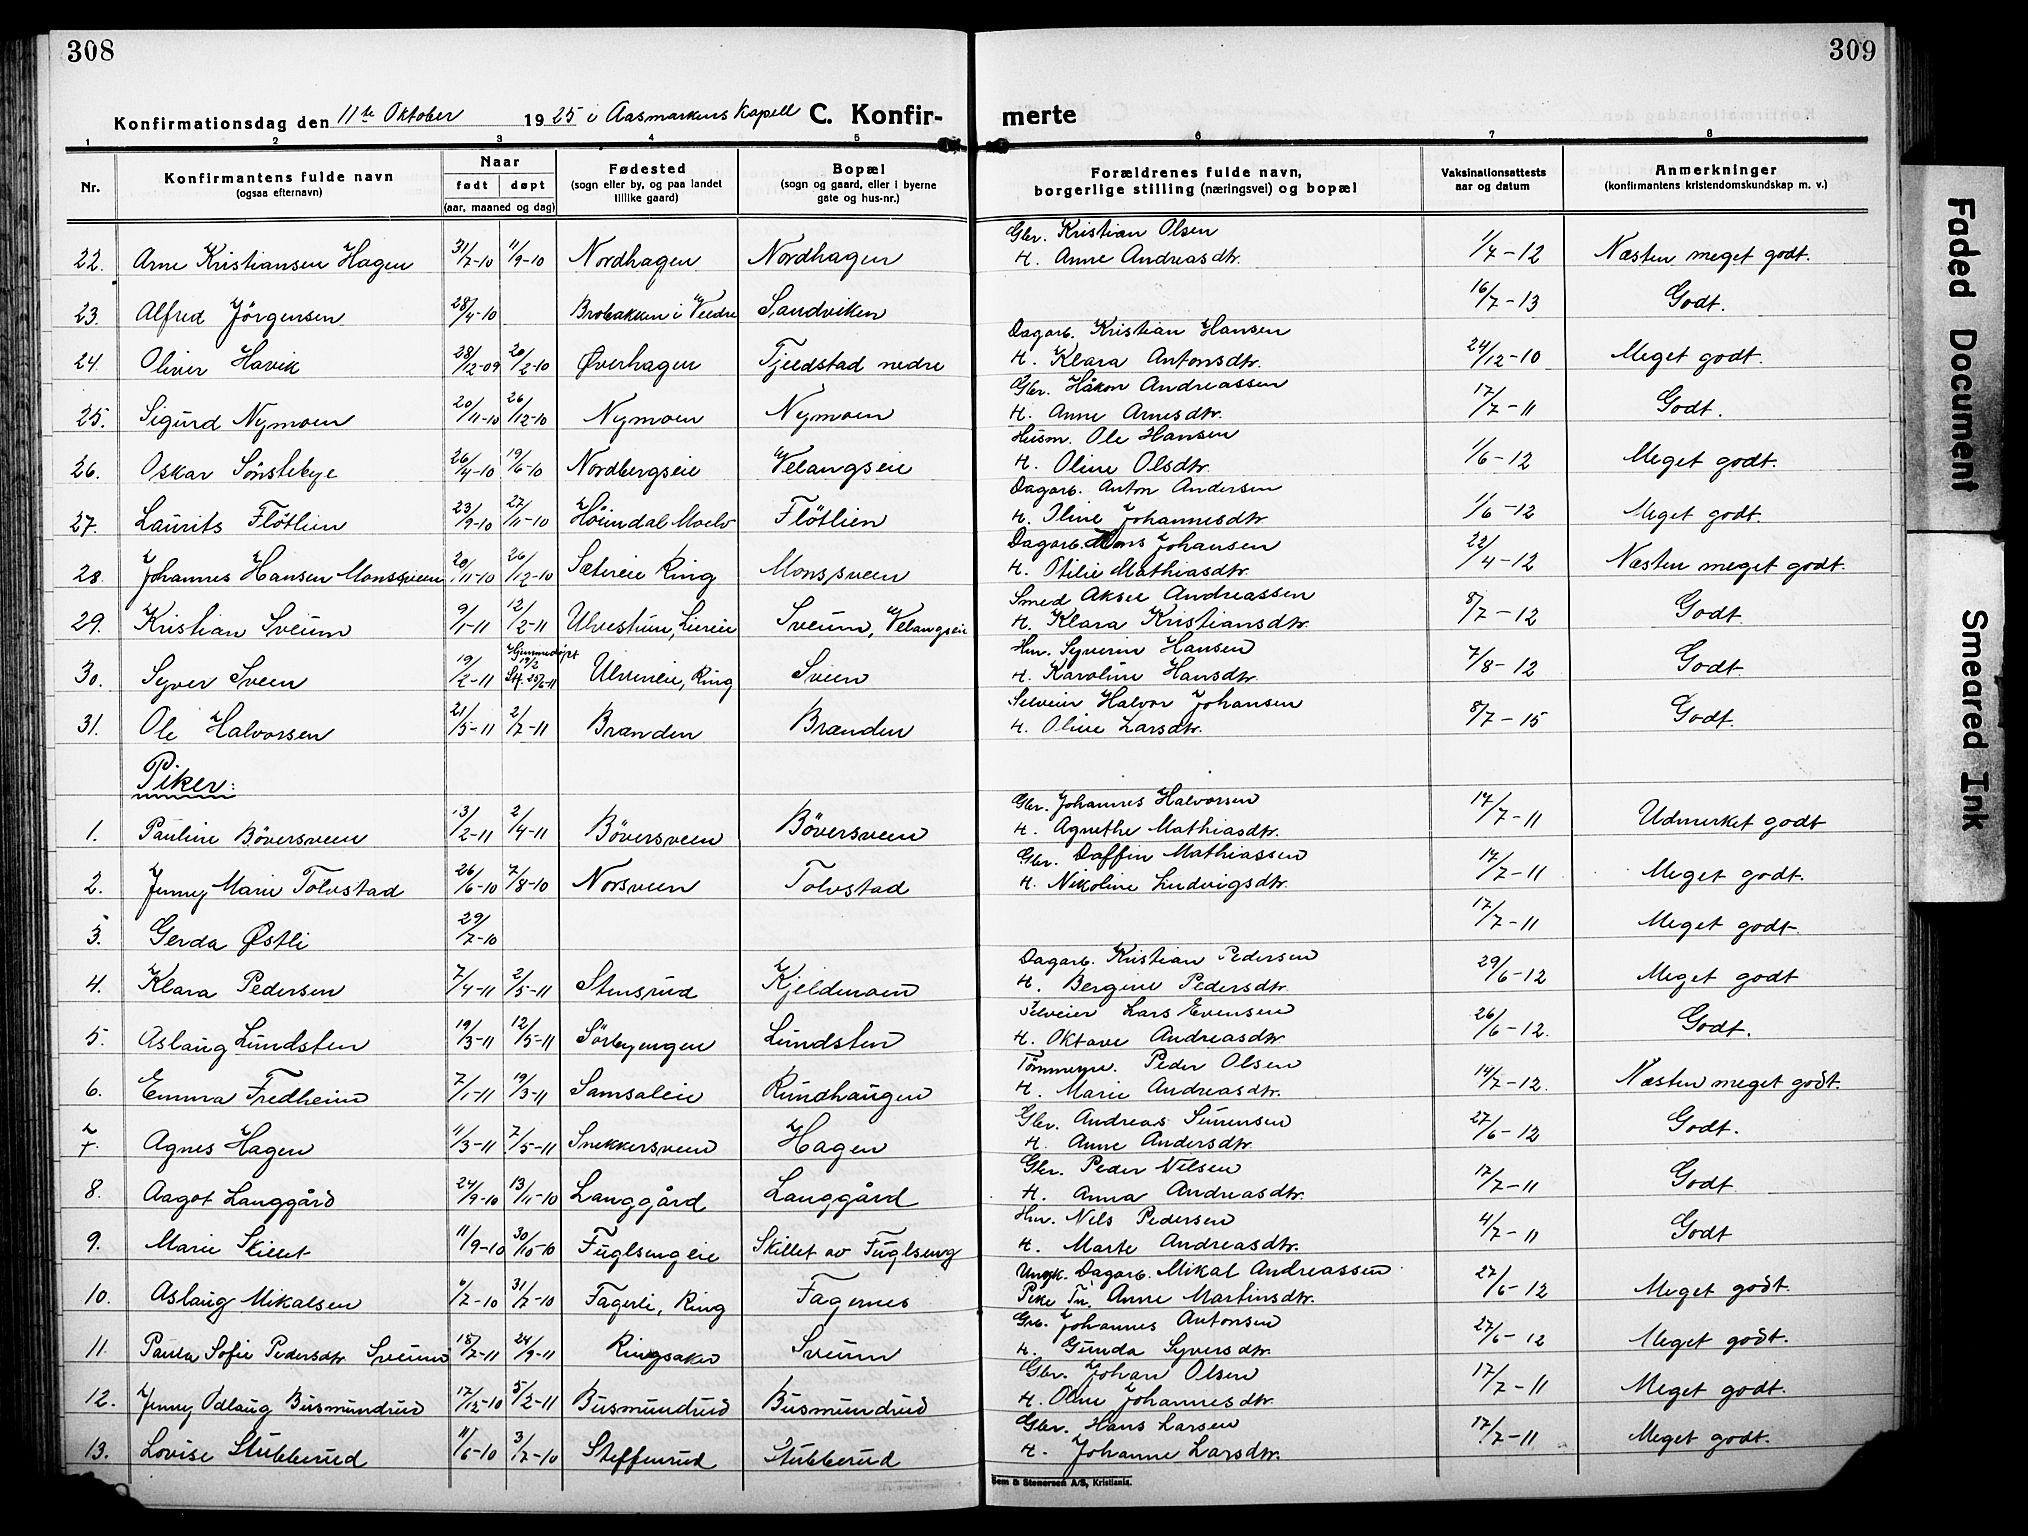 308
309
Konfirmationsdag den 11te Oktober 1925 i Aasmarkens Kapell C. Konfirmerte
1 2 3 4 5 6 7 8
Nr. Konfirmantens fulde navn (ogsaa efternavn) Naar født døpt (aar, maaned og dag) Fødested (sogn eller by, og paa landet tillike gaard) Bopæl (sogn og gaard, eller i byerne gate og hus-nr.) Forældrenes fulde navn, borgerlige stilling (næringsvei) og bopæl Vaksinationsattests aar og datum Anmerkninger (konfirmantens kristendomskundskap m. v.)
22. Arne Kristiansen Hagen 31/7-10 11/9-10 Nordhagen Nordhagen Gbr. Kristian Olsen H. Anne Andreasdtr. 1/7-12 Næsten meget godt.
23. Alfred Jörgensen 28/4-10 Brobakken i Veldre Sandviken 16/7-13 Godt.
24. Oliver Havik 28/12-09 20/2-10 Øverhagen Tjeldstad nedre Dagarb. Kristian Hansen H. Klara Antonsdtr. 24/12-10 Meget godt.
25. Sigurd Nymoen 20/11-10 26/12-10 Nymoen Nymoen Gbr. Håkon Andreassen H. Anne Arnesdtr. 17/7-11 Godt.
26. Oskar Sönstebye 26/4-10 19/6-10 Nordbergseie Velangseie Husm. Ole Hansen H. Oline Olsdtr. 1/6-12 Meget godt.
27. Laurits Flötlien 23/9-10 27/11-10 Höiindal Moelv Flötlien Dagarb. Anton Andersen H. Oline Johannesdtr 1/6-12 Meget godt.
28. Johannes Hansen Monssveen 20/11-10 26/12-10 Sætereie Ring Monssveen Dagarb. Hans Johansen H. Otilie Mathiasdtr. 22/4-12 Næsten meget godt.
29. Kristian Sveum 9/1-11 12/2-11 Ulvestuen, Liereie Sveum, Velangseie Smed Aksel Andreassen H. Klara Kristiansdtr. 8/7-12 Godt
30. Syver Sveen 19/2-11 Hjemmedöpt 19/2 Stf. 25/6-11 Ulvneie, Ring Sveen Hm. Syverin Hansen H. Karoline Hansdtr. 7/8-12 Godt.
31. Ole Halvorsen 21/5-11 2/7-11 Brænden Brænden Selveier Halvor Johansen H. Oline Larsdtr. 8/7-15 Godt.
Piker:
1. Pauline Böversveen 13/2-11 2/4-11 Böversveen Böversveen Gbr. Johannes Halvorsen H. Agnethe Mathiasdtr. 17/7-11 Udmerket godt
2. Jenny Marie Tolvstad 26/6-10 7/8-10 Norsveen Tolvstad Gbr. Daffin Mathiassen H. Nikoline Ludvigsdtr. 17/7-11 Meget godt.
3. Gerda Østli 29/7-10 17/7-11 Meget godt.
4. Klara Pedersen 7/4-11 2/5-11 Stensrud Kjeldemoen Dagarb. Kristian Pedersen H. Bergine Pedersdtr. 29/6-12 Meget godt
5. Aslaug Lundsten 19/3-11 12/5-11 Sörbyengen Lundsten Selveier Lars Evensen H. Oktave Andreasdtr 26/6-12. Godt.
6. Emma Fredheim 7/1-11 19/3-11 Samsaleie Rundhaugen Tömmerm. Peder Olsen H. Marie Andreasdtr. 14/7-12. Næsten meget godt.
7. Agnes Hagen 11/3-11 7/5-11 Snekkersveen Hagen Gbr. Andreas Simensen H. Anne Andersdtr 27/6-12 Godt.
8. Aagot Langgård 24/9-10 13/11-10 Langgård Langgård Gbr. Peder Nilsen H. Anna Andreasdtr. 17/7-11 Godt
9. Marie Skillet 11/9-10 30/10-10 Fuglsengeie Skillet av Fuglseng Hm. Nils Pedersen H. Marte Andreasdtr. 4/7-11 Godt
10. Aslaug Mikalsen 6/7-10 31/7-10 Fagerli, Ring Fagernes Ungk. Dagarb. Mikal Andreassen Pike Tn. Anne Martinsdtr. 27/6-12 Meget godt.
11. Paula Sofie Pedersdtr Sveum 18/7-11 24/9-11 Ringsaker Sveum Grb. Johannes Antonsen H. Gunda Syversdtr. 27/6-12 Meget godt.
12. Jenny Odlaug Busmundrud 17/12-10 5/2-11 Busmundrud Busmundrud Gbr. Johan Olsen H. Oline Johannesdtr. 17/7-11 Meget godt.
13. Lovise Stubberud 11/6-10 3/7-10 Steffenrud Stubberud Gbr. Hans Larsen H. Johanne Larsdtr. 17/7-11 Meget godt.
Sem & Stenersen A/S, Kristiania.
Faded Document
Smeared Ink